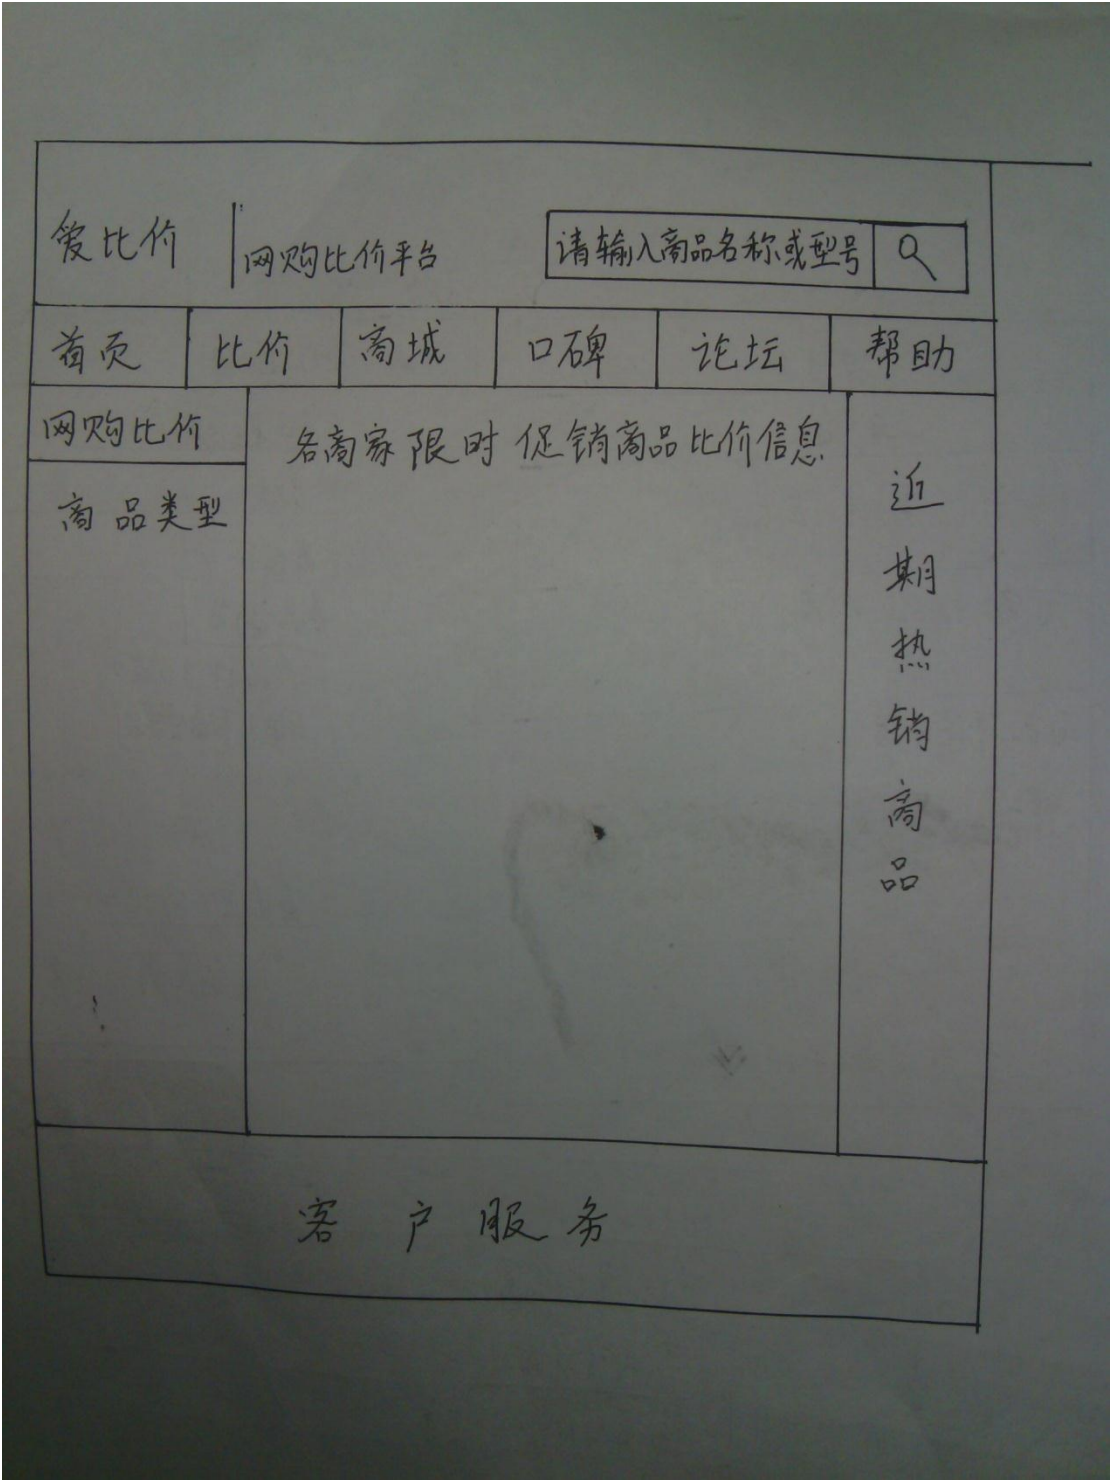 爱比价
网购比价平台
请输入商品名称或型号
首页 比价 商城 口碑 论坛 帮助
网购比价
商品类型
各商家限时促销商品比价信息
近期热销商品
客户服务